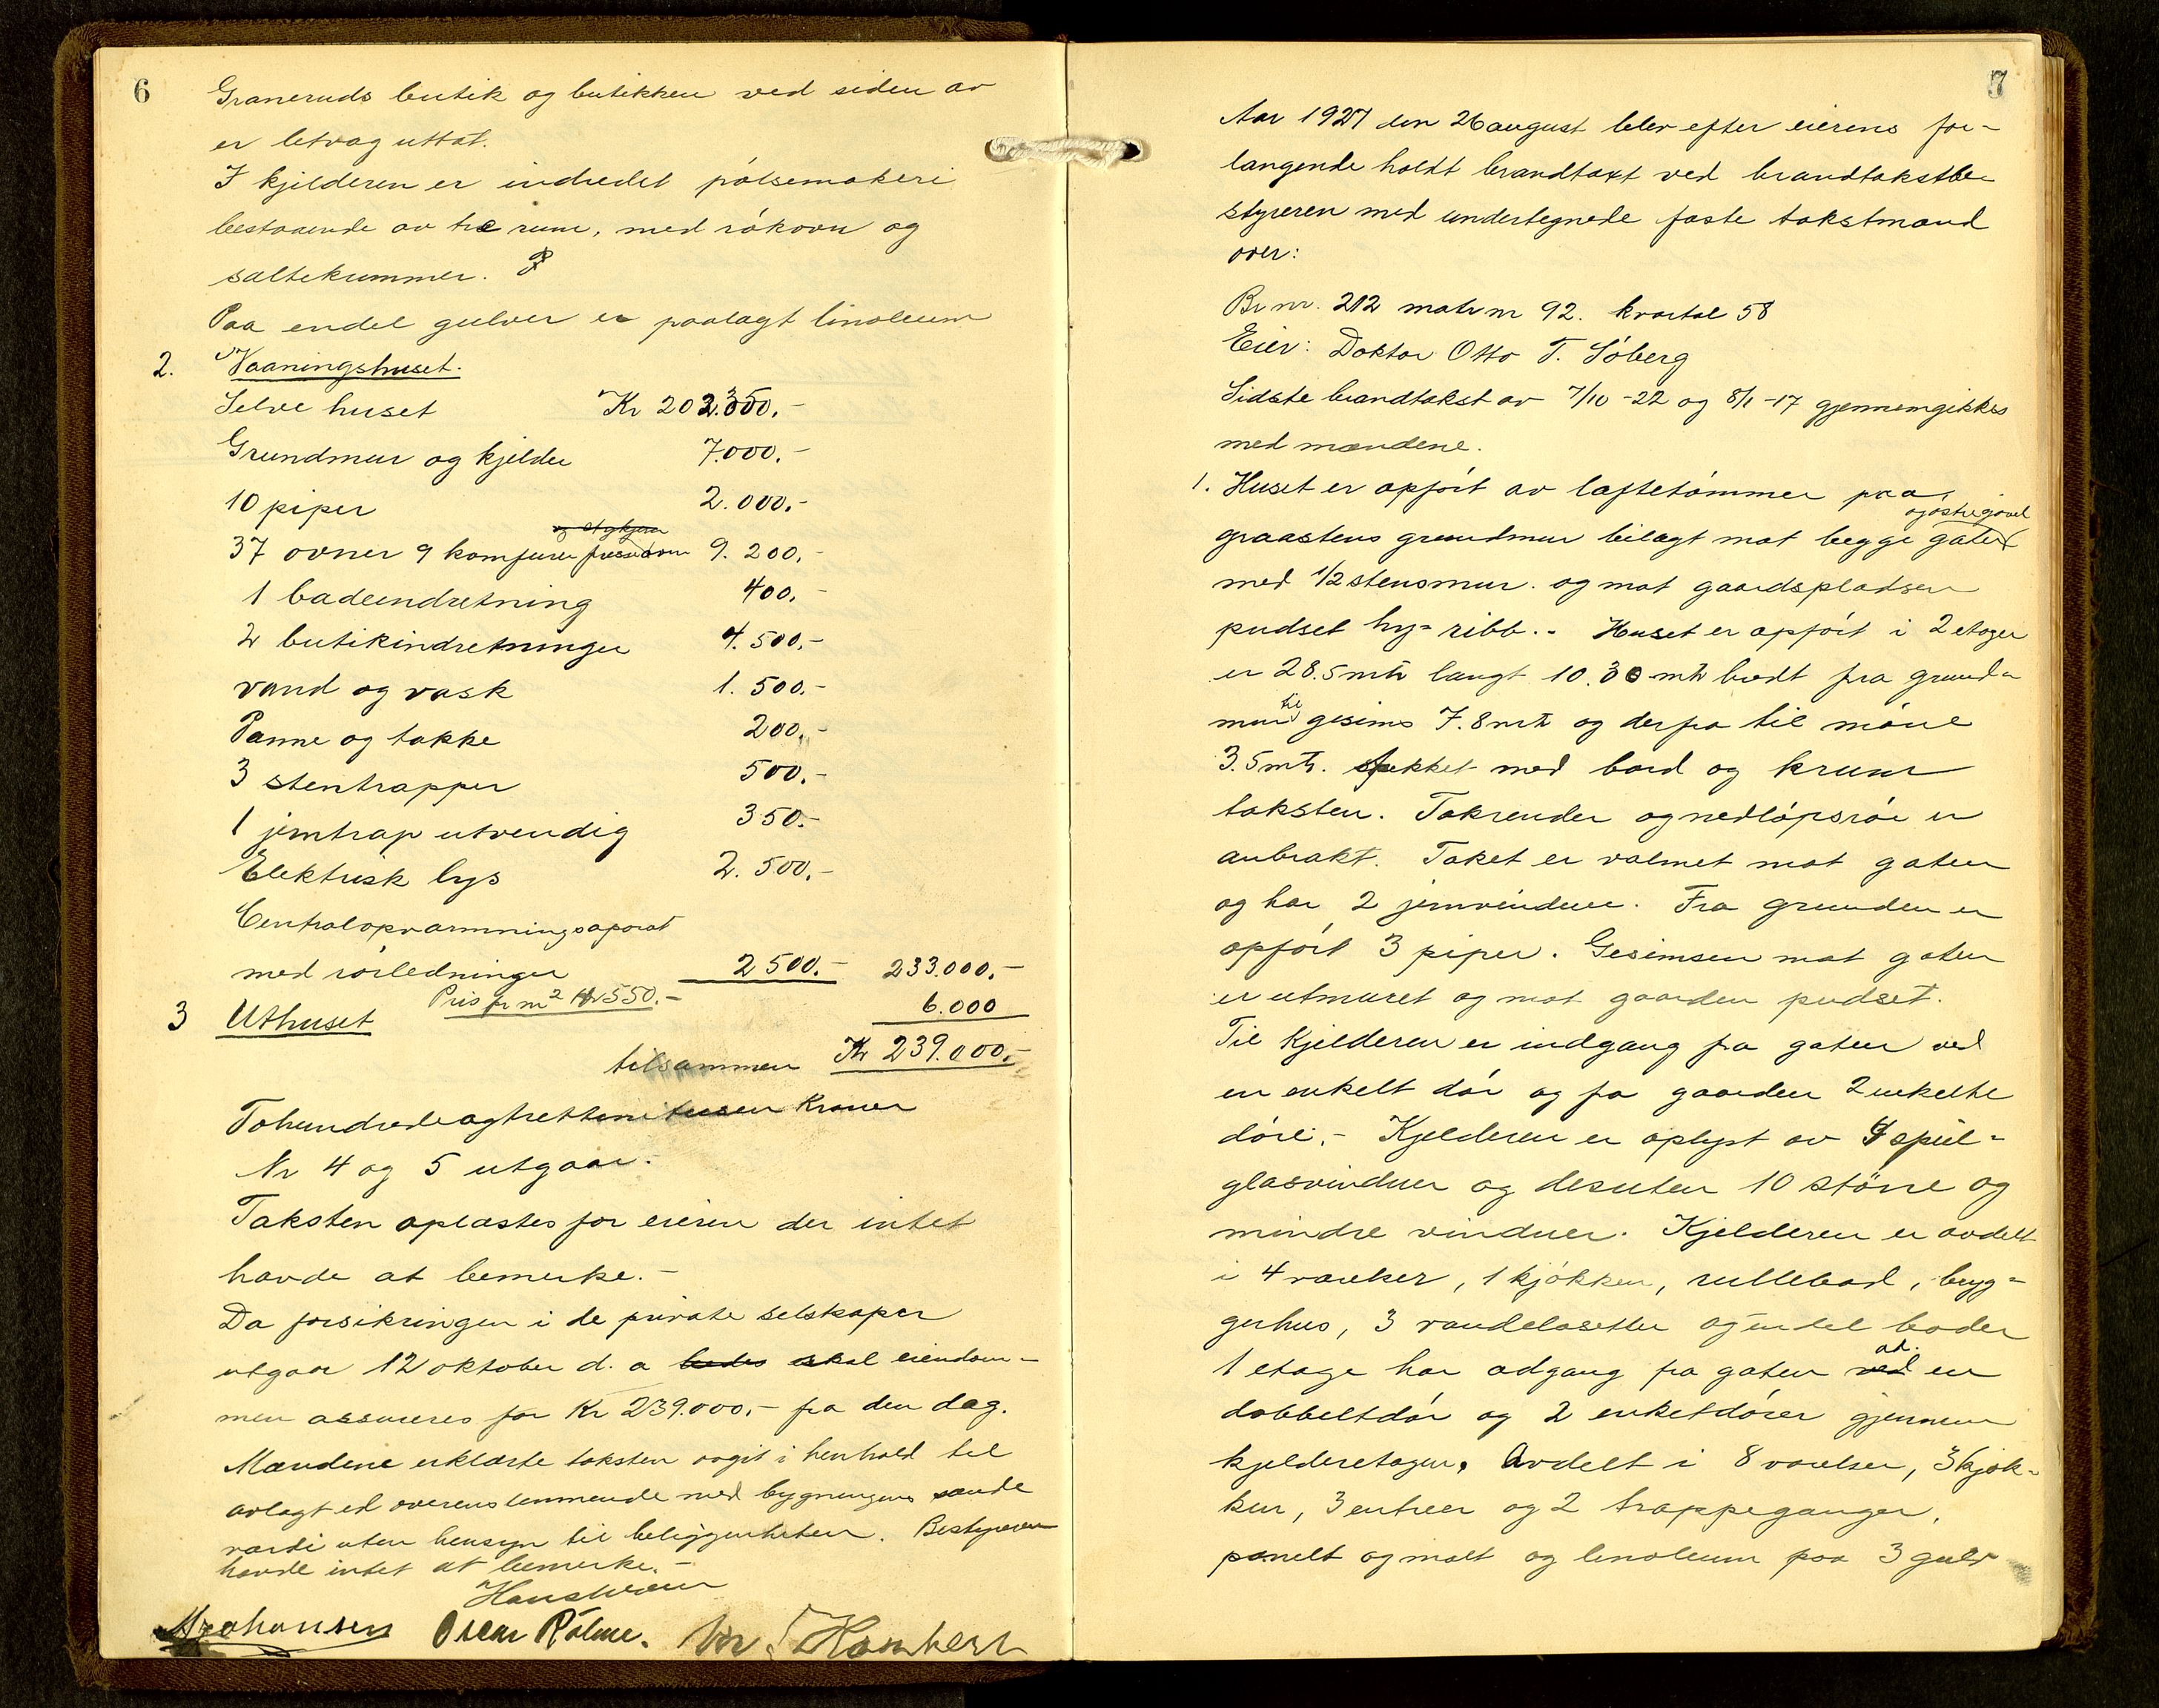 6
Graneruds butik og butikken ved siden av
er letvæg uttat.
I kjelderen er indredet pólsemakeri
bestaaende av tre rum, med rókovn og
saltekummer.
Paa endel gulver er paalagt linoleum
2. Vaaningshuset.
Selve huset Kr 202.350.-
Grundmur og kjelder 7.000.-
10 piper 2.000.-
37 ovner 9 komfurer 9.200.-
1 badeindretning 400.-
2 butikindretninger 4.500.-
vand og vask 1.500.-
Panne og takke 200.-
3 stentrapper 500.-
1 jerntrap utvendig 350.-
Elektrisk lys 2.500.-
Centralopvarmningsaparat
med rórledninger 2500.- 233.000.-
Pris pr m² Kr 550.-
3 Uthuset 6.000
tilsammen Kr 239.000.-
Tohundredeogtrettenitusen Kroner
Nr 4 og 5 utgaar.-
Taksten oplæstes for eieren der intet
havde at bemerke.-
Da forsikringen i de private selskaper
utgaar 12 oktober d. a skal eiendom-
men assureres for Kr 239.000.- fra den dag.
Mændene erklærte taksten avgit i henhold til
avlagt ed overenstemmende med bygningens sande
værdi uten hensyn til beliggenheten. Bestyreren
havde intet at bemerke.-
Oscar Rólme.
7
Aar 1927 den 26 august blev efter eierens for-
langende holdt brandtaxt ved brandtakstbe-
styreren med undertegnede faste takstmænd
over:
Br nr. 212 matr nr 92. kvartal 58
Eier: Doktor Otto T. Sóberg
Sidste brandtakst av 7/10-22 og 8/1-17 gjennemgikkes
med mændene.
1. Huset er opfórt av laftetómmer paa
og óstre gavel
graastens grundmur bilagt mot begge gater
med 1/2 stensmur. og mot gaardspladsen
pudset hy= ribb.- Huset er opfórt i 2 etager
er 28.5 mtr langt 10.30 mtr bredt fra grund-
mur til gesims 7.8 mtr og derfra til móne
3.5 mtr. tækket med bord og krum
taksten. Takrender og nedlópsrór er
anbrakt. Taket er valmet mot gaten
og har 2 jernvinduer. Fra grunden er
opfórt 3 piper. Gesimsen mot gaten
er utmuret og mot gaarden pudset.
Til kjelderen er indgang fra gaten ved
en enkelt dór og fra gaarden 2 enkelte
dóre.- Kjelderen er oplyst av 4 speil-
glasvinduer og desuten 10 stórre og
mindre vinduer. Kjelderen er avdelt
i 4 værelser, 1 kjókken, rullebod, bryg-
gerhus, 3 vandclosetter og endel boder
1 etage har adgang fra gaten ad. en
dobbeltdór og 2 enkeltdórer gjennem
kjelderetagen. Avdelt i 8 værelser, 3 kjók-
ken, 3 entreer og 2 trappeganger.
panelt og malt og linoleum paa 3 gulv